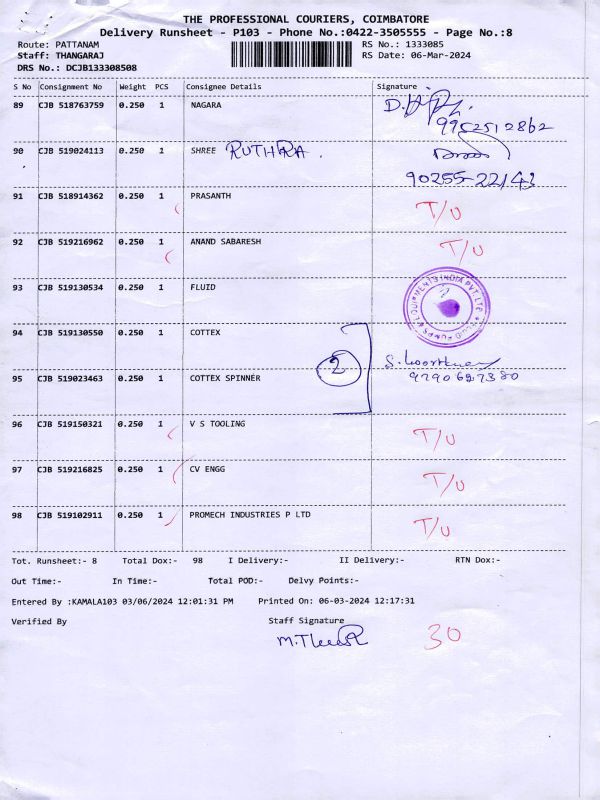 THE PROFESSIONAL COURIERS, COIMBATORE
Delivery Runsheet - P103 - Phone No.:0422-3505555 - Page No.:8
Route: PATTANAM RS No.: 1333085
Staff: THANGARAJ RS Date: 06-Mar-2024
DRS No.: DCJB133308508
S No Consignment No Weight PCS Consignee Details Signature
89 CJB 518763759 0.250 1 NAGARA
9952512862
90 CJB 519024113 0.250 1 SHREE RUTHRA.
90255-22143
91 CJB 518914362 0.250 1 PRASANTH T/U
92 CJB 519216962 0.250 1 ANAND SABARESH T/U
93 CJB 519130534 0.250 1 FLUID
94 CJB 519130550 0.250 1 COTTEX
2
95 CJB 519023463 0.250 1 COTTEX SPINNER
96 CJB 519150321 0.250 1 V S TOOLING T/U
97 CJB 519216825 0.250 1 CV ENGG T/U
98 CJB 519102911 0.250 1 PROMECH INDUSTRIES P LTD T/U
Tot. Runsheet:- 8 Total Dox:- 98 I Delivery:- II Delivery:- RTN Dox:-
Out Time:- In Time:- Total POD:- Delvy Points:-
Entered By :KAMALA103 03/06/2024 12:01:31 PM Printed On: 06-03-2024 12:17:31
Verified By Staff Signature
30